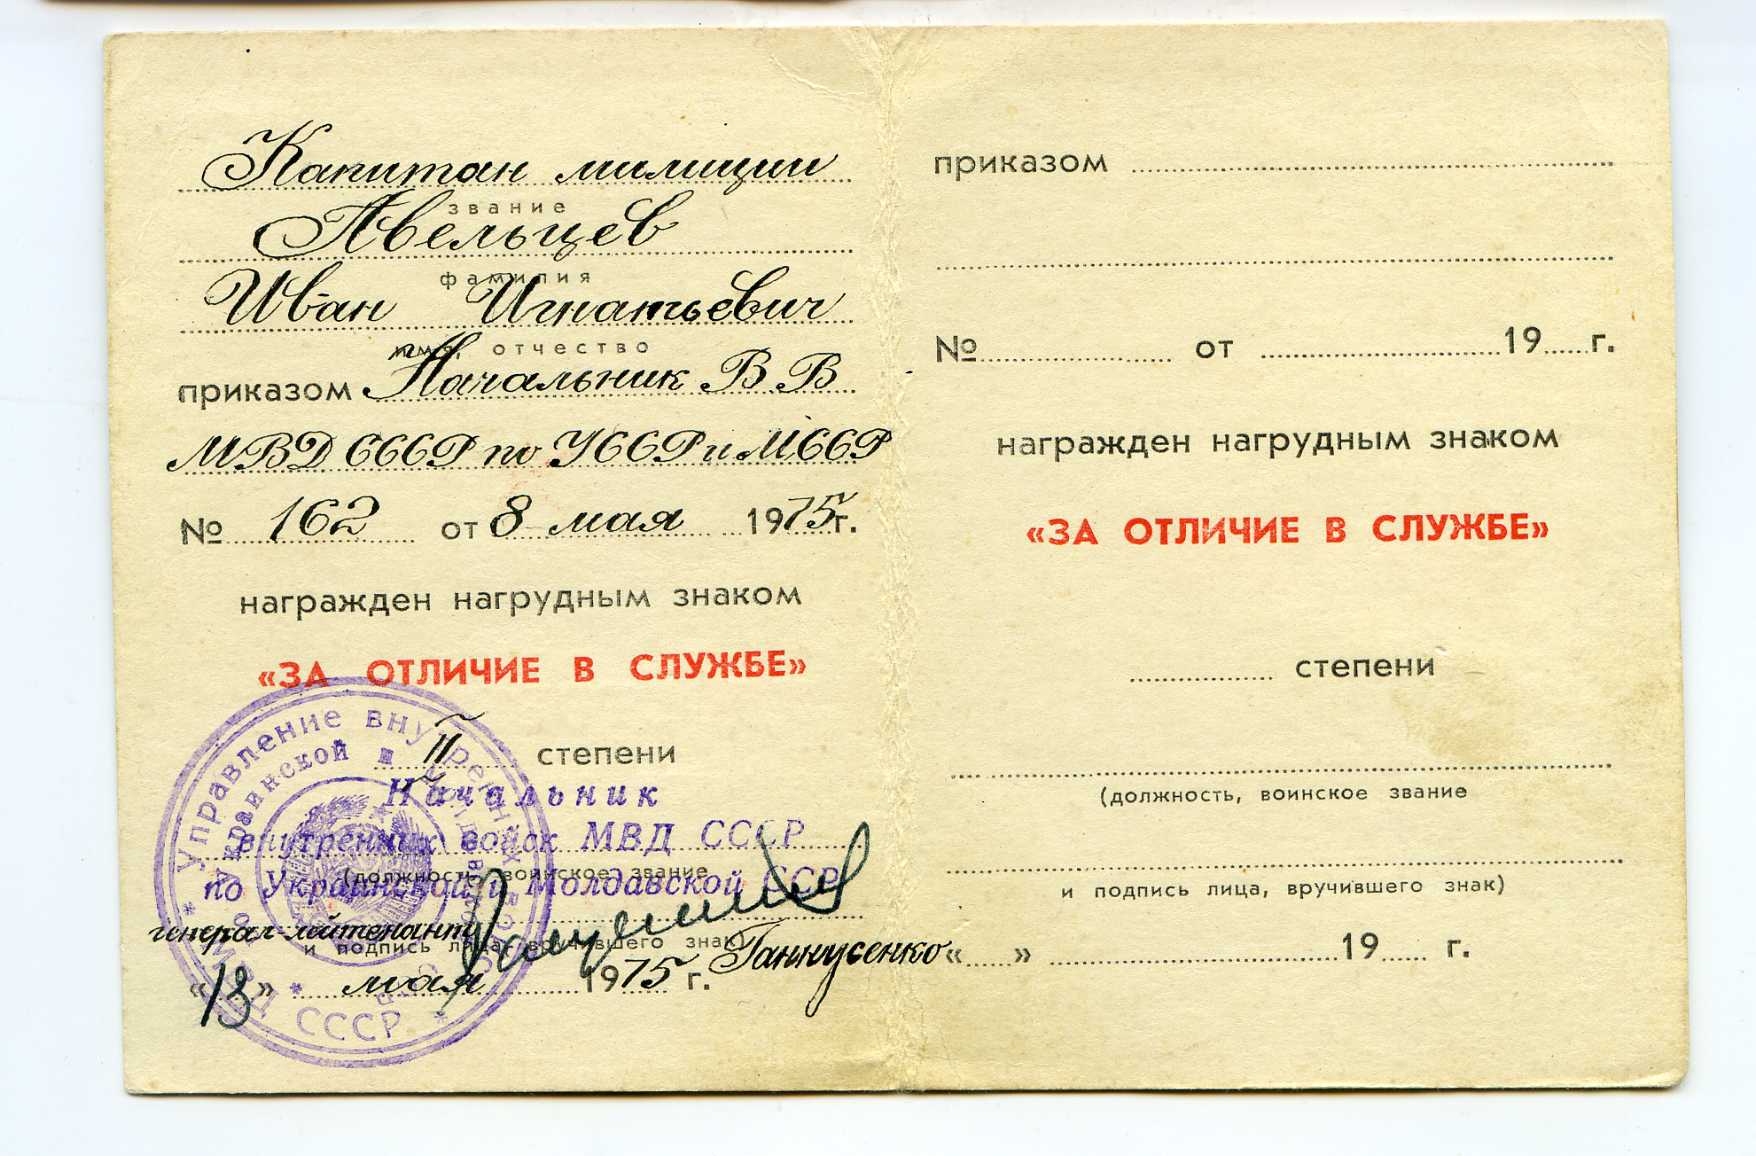 Капитан милиции
звание
Авельцев
фамилия
Иван Игнатьевич
имя, отчество
приказом Начальник ВВ
МВД СССР по УССР и МССР
№ 162 от 8 мая 1975 г.
награжден нагрудным знаком
«ЗА ОТЛИЧИЕ В СЛУЖБЕ»
II степени
Начальник
внутренних войск МВД СССР
(должность, воинское звание
по Украинской и Молдавской ССР
генерал-лейтенант Ганнусенко
и подпись лица, вручившего знак)
«13» мая 1975 г.
Управление внутренних войск
МВД СССР
по Украинской и Молдавской ССР
приказом
№ от 19 г.
награжден нагрудным знаком
«ЗА ОТЛИЧИЕ В СЛУЖБЕ»
степени
(должность, воинское звание
и подпись лица, вручившего знак)
« » 19 г.